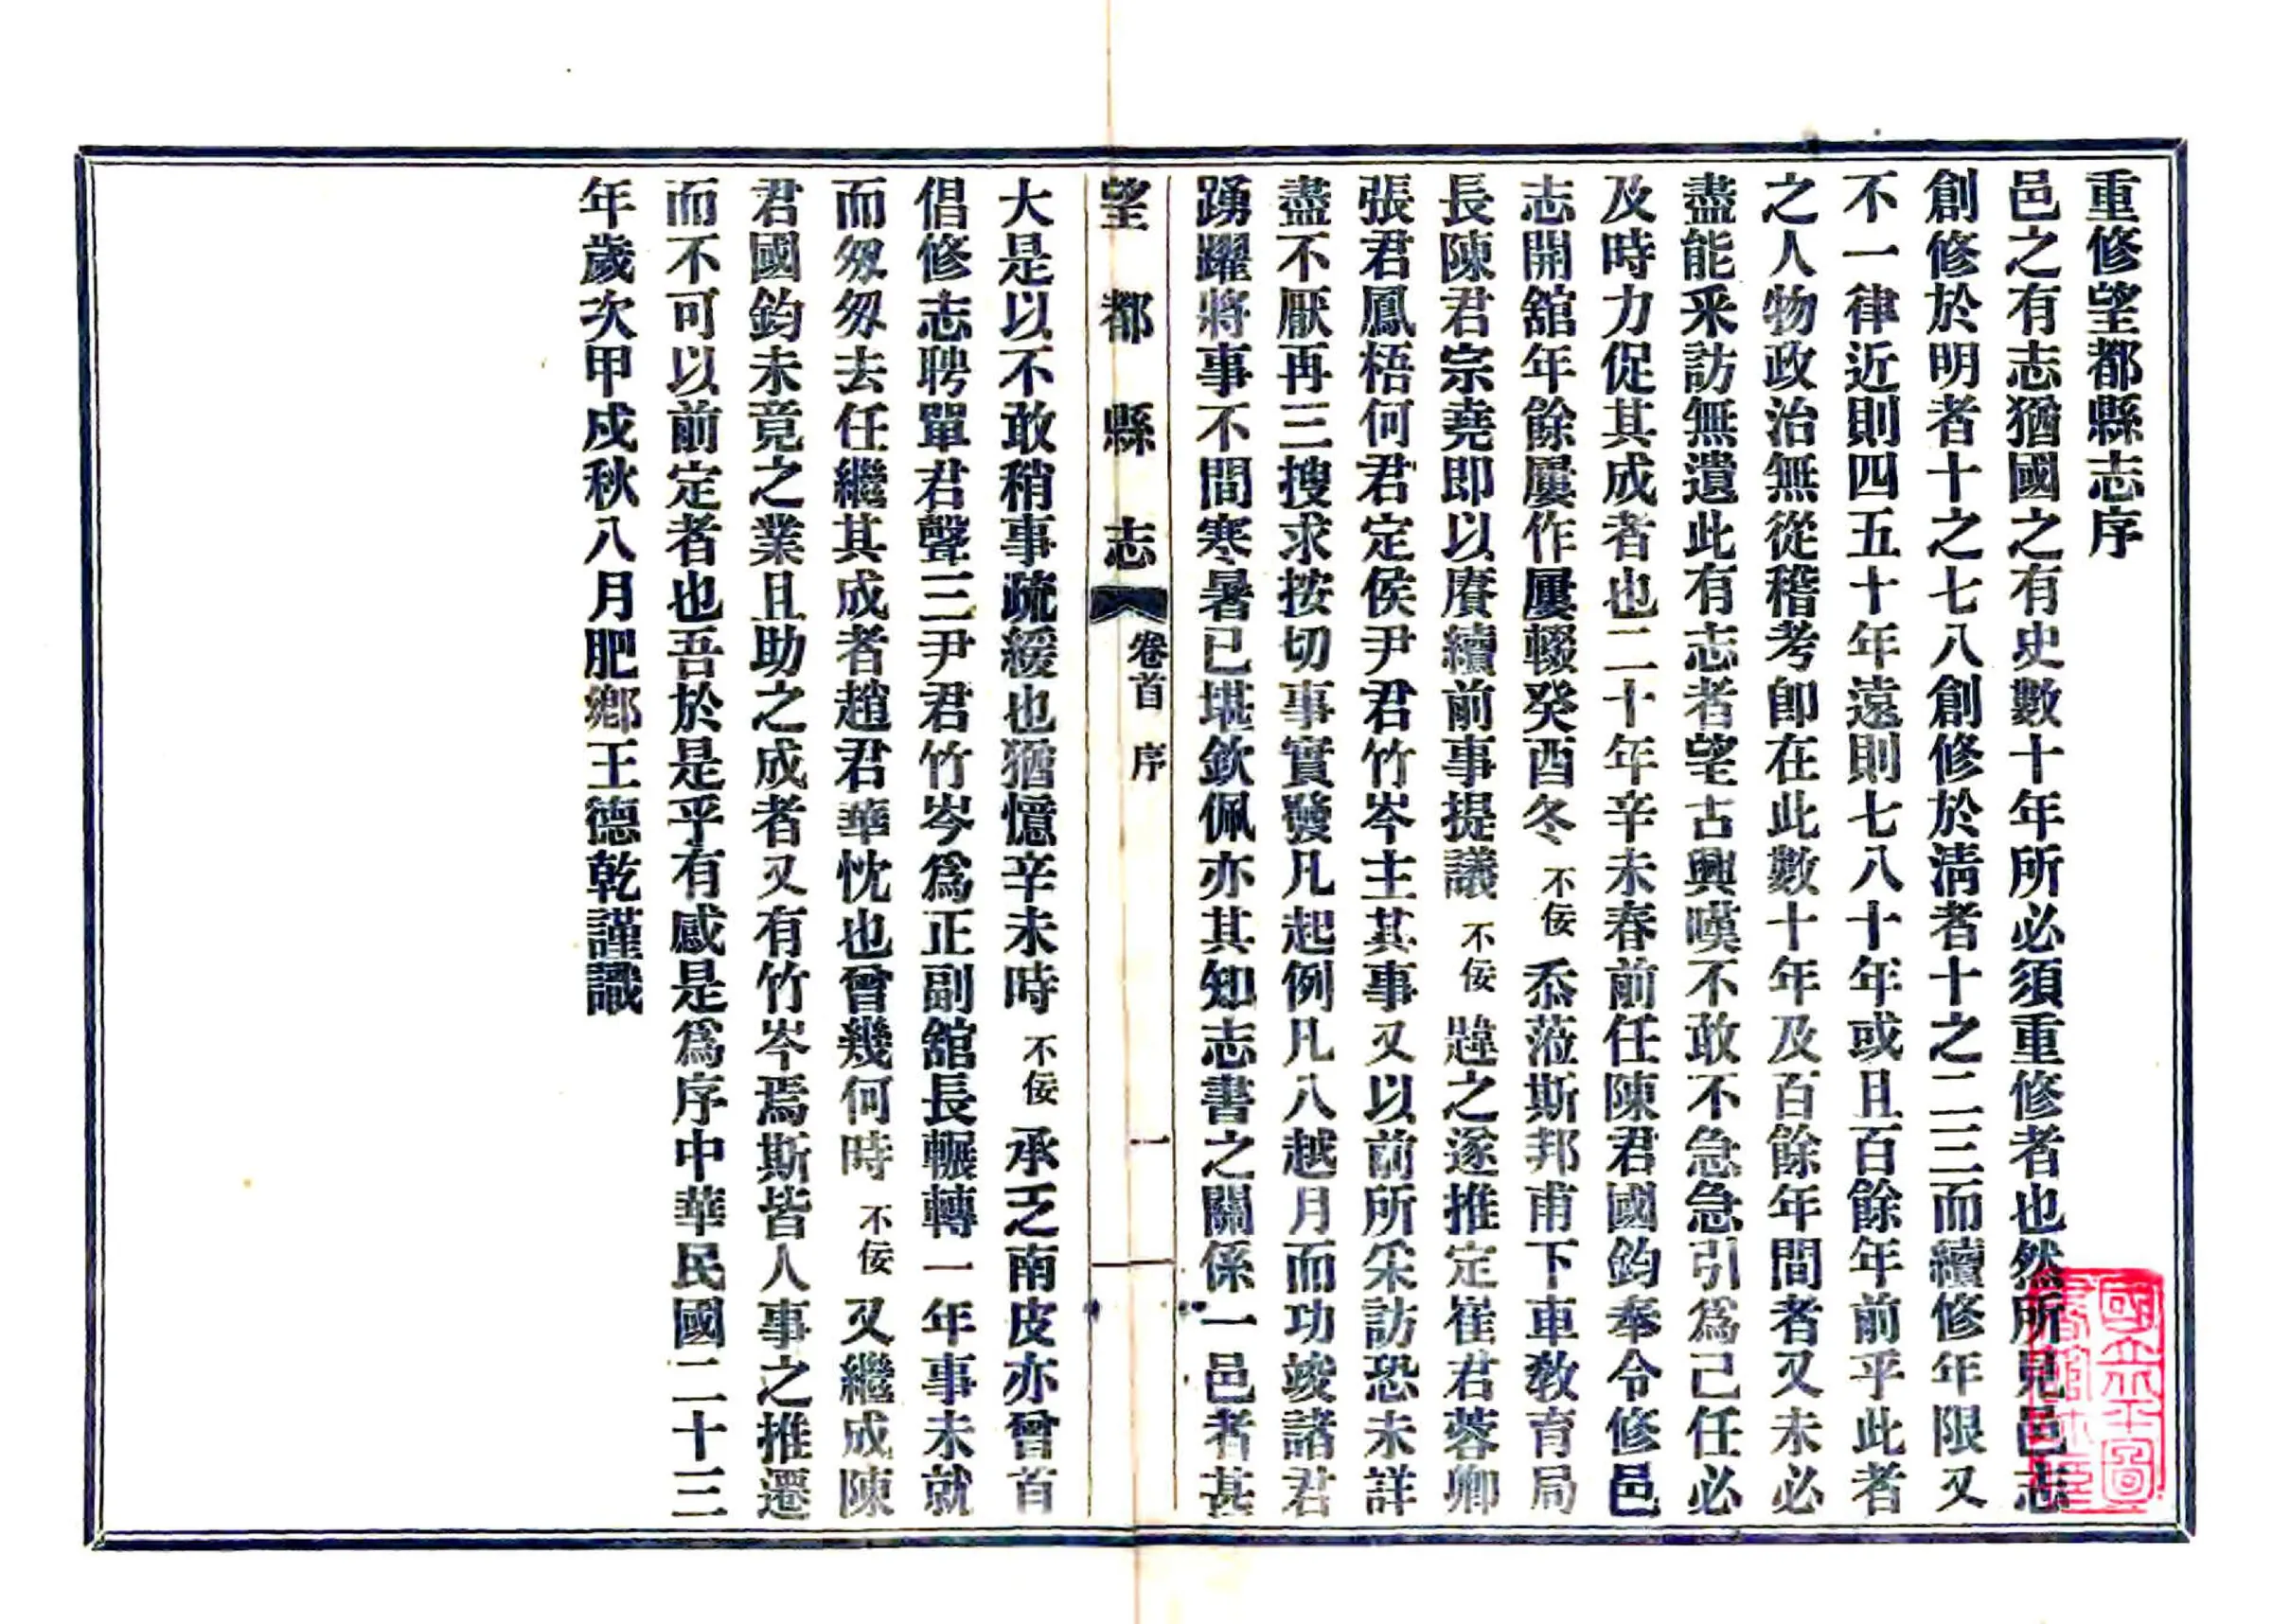 重修望都縣志序
邑之有志猶國之有史數十年所必須重修者也然所見邑志
創修於明者十之七八創修於淸者十之二三而續修年限又
不一律近則四五十年遠則七八十年或且百餘年前乎此者
之人物政治無從稽考卽在此數十年及百餘年間者又未必
盡能采訪無遺此有志者望古興嘆不敢不急急引爲己任必
及時力促其成者也二十年辛未春前任陳君國鈞奉令修邑
志開舘年餘屢作屢輟癸酉冬不佞忝蒞斯邦甫下車敎育局
長陳君宗堯即以賡續前事提議不佞韙之遂推定崔君蓉卿
張君鳳梧何君定侯尹君竹岑主其事又以前所采訪恐未詳
盡不厭再三搜求按切事實發凡起例凡八越月而功竣諸君
踴躍將事不間寒暑已堪欽佩亦其知志書之關係一邑者甚
望都縣志 卷首 序 一
大是以不敢稍事疏緩也猶憶辛未時不佞承乏南皮亦曾首
倡修志聘單君聲三尹君竹岑爲正副舘長輾轉一年事未就
而匆匆去任繼其成者趙君華忱也曾幾何時不佞又繼成陳
君國鈞未竟之業且助之成者又有竹岑焉斯皆人事之推遷
而不可以前定者也吾於是乎有感是爲序中華民國二十三
年歲次甲戍秋八月肥鄉王德乾謹識